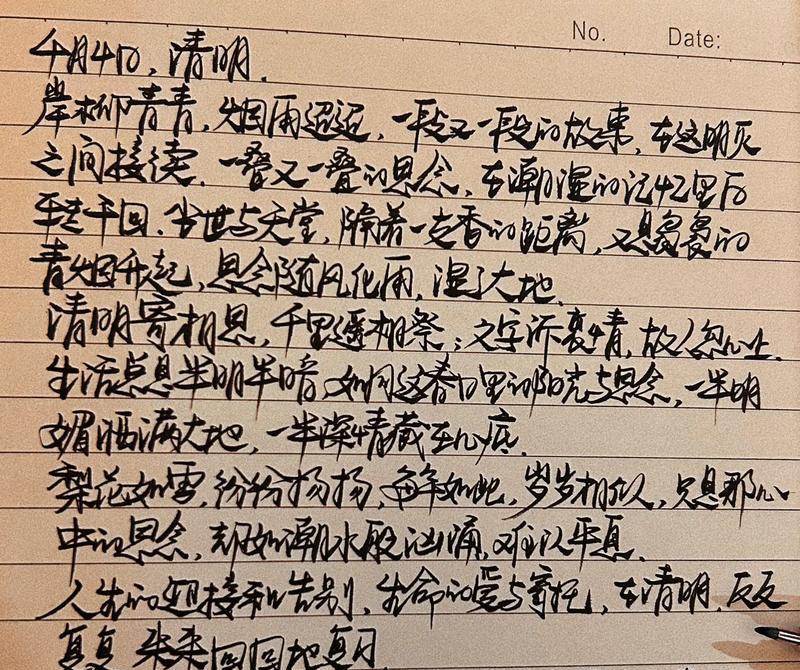 No. Date:
4月4日，清明.
岸柳青青，烟雨迢迢，一段又一段的故事，在这明灭
之间接续，一叠又一叠的思念，在潮湿的记忆里百
转千回.尘世与天堂，隔着一支香的距离，又是袅袅的
青烟升起，思念随风化雨，湿了大地.
清明寄相思，千里遥相祭；文字诉衷情，故人忽心上.
生活总是半明半暗，如同这春日里的阳光与思念，一半明
媚洒满大地，一半深情藏至心底.
梨花如雪，纷纷扬扬，每年如此，岁岁相似，只是那心
中的思念，却如潮水般汹涌，难以平息.
人生的迎接和告别，生命的爱与寄托，在清明，反反
复复 来来回回地复习